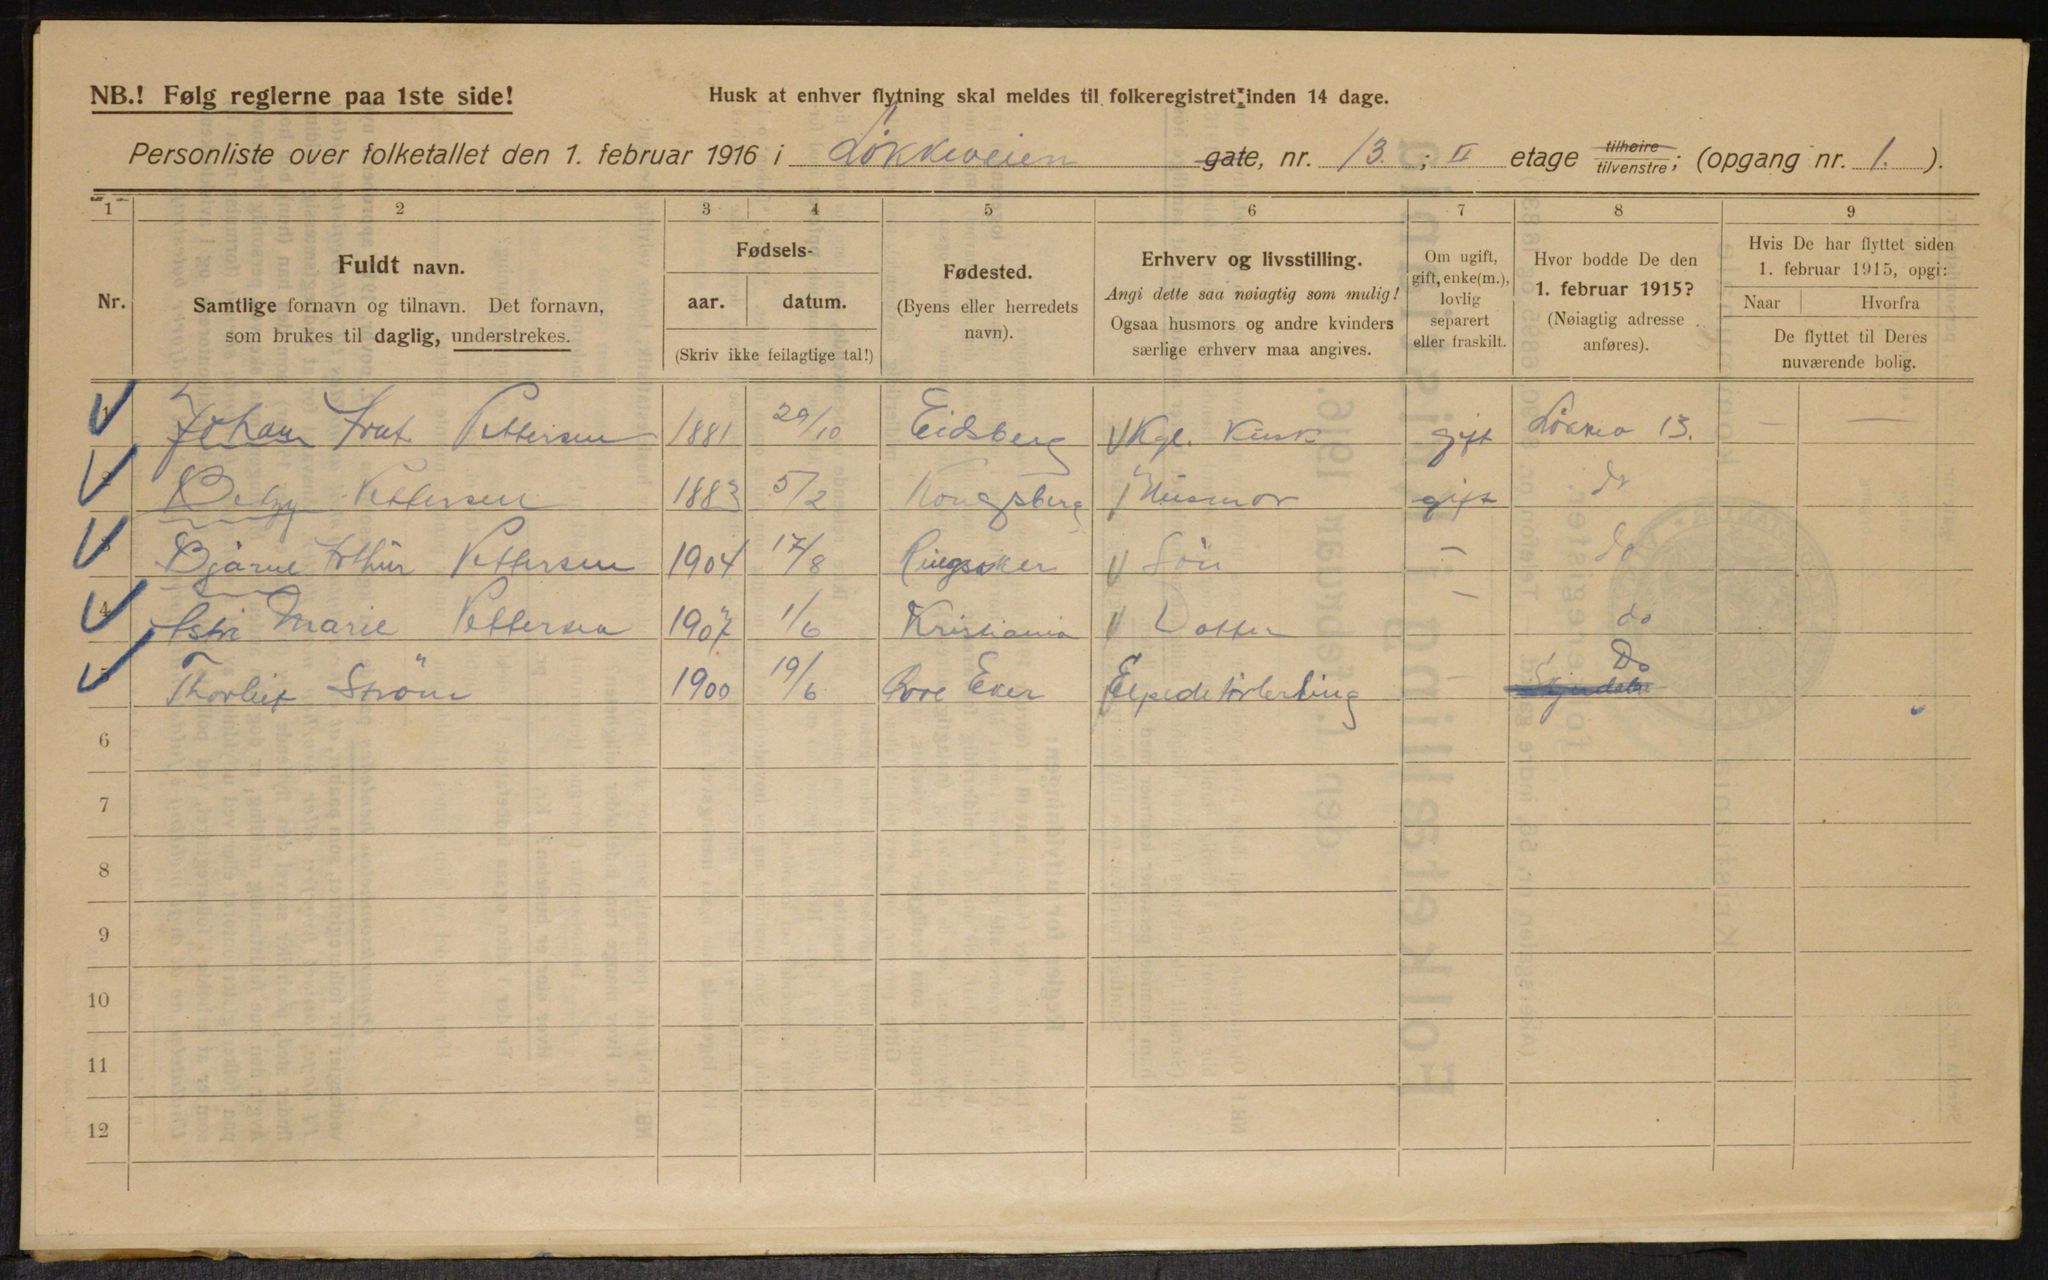 NB.! Følg reglerne paa 1ste side!
Husk at enhver flytning skal meldes til folkeregistret inden 14 dage.
Personliste over folketallet den 1. februar 1916 i Løkkeveien gate, nr. 13 ; II etage tilhøire tilvenstre; (opgang nr. 1. ).
1 2 3 4 5 6 7 8 9
Nr.
Fuldt navn.
Samtlige fornavn og tilnavn. Det fornavn,
som brukes til daglig, understrekes.
Fødsels-
aar. datum.
(Skriv ikke feilagtige tal!)
Fødested.
(Byens eller herredets
navn).
Erhverv og livsstilling.
Angi dette saa nøiagtig som mulig!
Ogsaa husmors og andre kvinders
særlige erhverv maa angives.
Om ugift,
gift, enke(m.),
lovlig
separert
eller fraskilt.
Hvor bodde De den
1. februar 1915?
(Nøiagtig adresse
anføres).
Hvis De har flyttet siden
1. februar 1915, opgi:
Naar Hvorfra
De flyttet til Deres
nuværende bolig.
1 Johan Pettersen 1881 29/10 Eidsberg Kgl. Kusk gift Løkkev 13. — —
2 Betzy Pettersen 1883 5/2 Kongsberg Husmor gift do
3 Bjarne Arthur Pettersen 1904 17/8 Ringsaker Søn — do
4 Marie Pettersen 1907 1/6 Kristiania Datter — do
5 Thorleif Strøm 1900 19/6 Øvre Eker Do
6
7
8
9
10
11
12